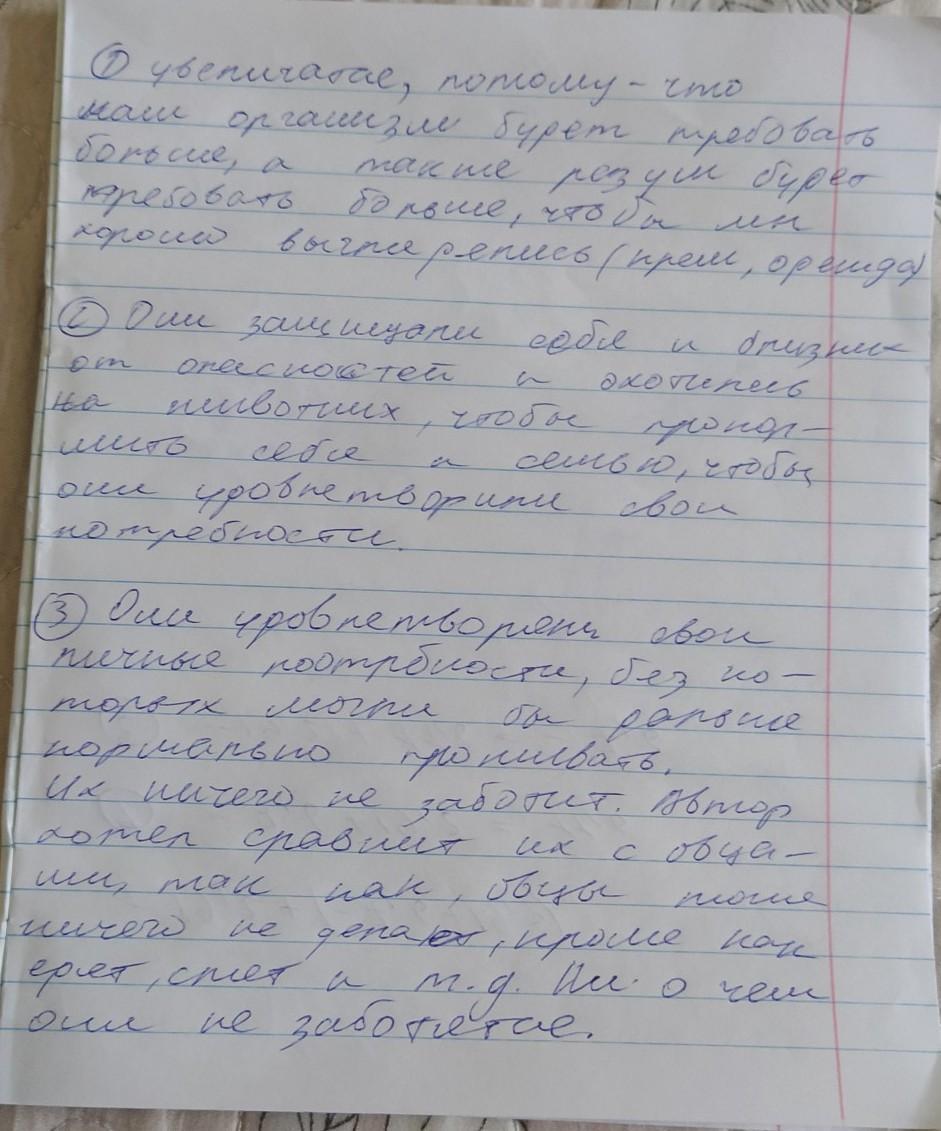 ① увеличатся, потому-что
наш организм будет требовать
больше, а также разум будет
требовать больше, чтобы мы
хорошо выгляделись (крем, одежда)
② Они защищали себя и близких
от опасностей и охотились
на животних, чтобы прокор-
мить себя и семью, чтобы
они удовлетворили свои
потребности.
③ Они удовлетворены свои
личные поотрбности, без ко-
торых могли бы дальше
нормально проживать.
Их ничего не заботит. Автор
хотел сравнит их с овца-
ми, так как, овцы тоже
ничего не делают, кроме как
едят, спят и т.д. Ни о чем
они не заботятся.